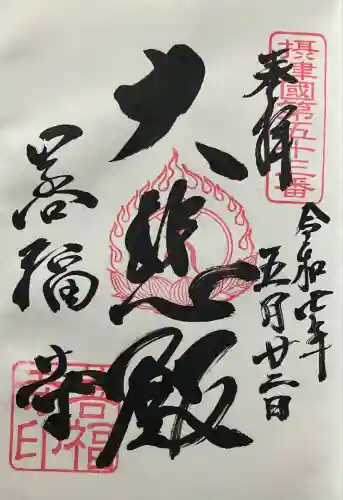 奉拝
摂津國第五十三番
令和七年
五月廿二日
大悲殿
善福寺
善福寺印